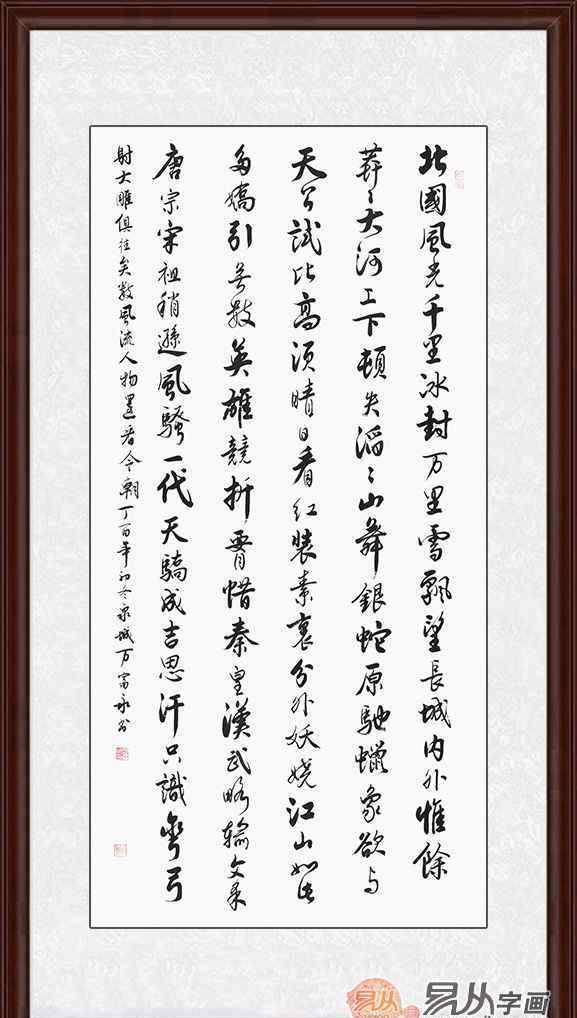 北國風光千里冰封万里雪飄望長城内外惟餘
莽〻大河上下頓失滔〻山舞銀蛇原馳蠟象欲与
天公試比高須晴日看红裝素裹分外妖嬈江山如此
多嬌引無數英雄競折腰惜秦皇漢武略輸文采
唐宗宋祖稍遜風騷一代天驕成吉思汗只識彎弓
射大雕俱往矣數風流人物還看今朝丁酉年初冬泉城万富永書
易从
易从字画